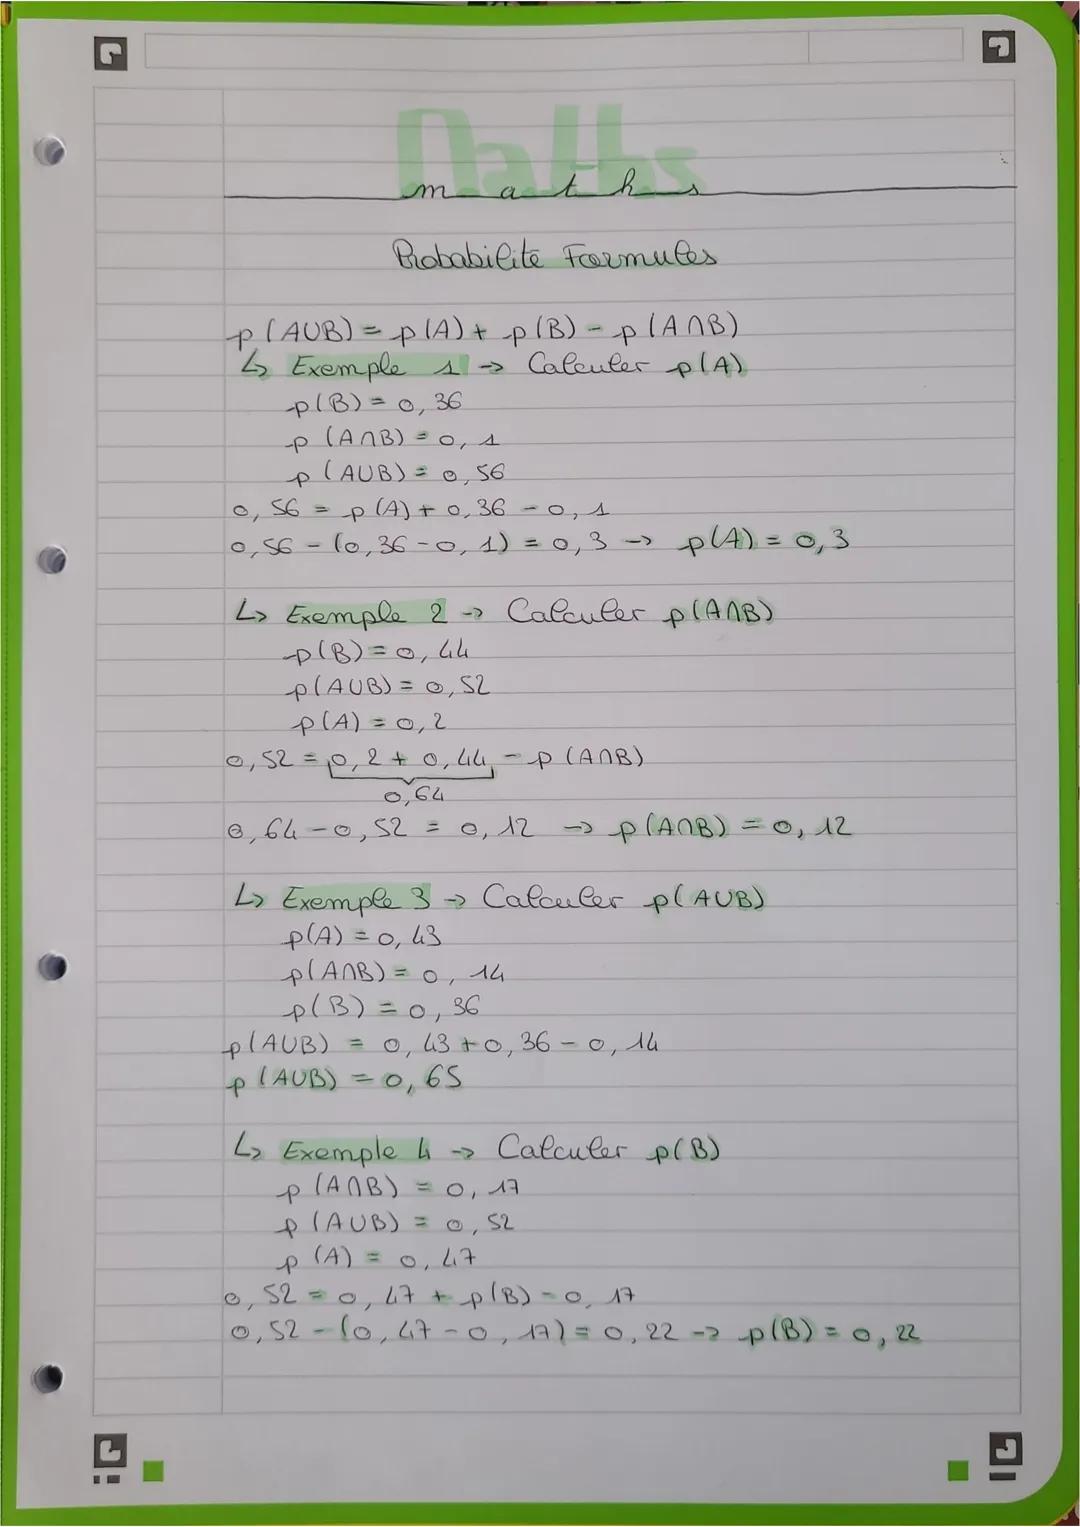 Maths
maths
Probabilité Formules
p(A∪B) = p(A) + p(B) - p(A∩B)
↳ Exemple 1 → Calculer p(A)
p(B) = 0,36
p(A∩B) = 0,1
p(A∪B) = 0,56
0,56 = p(A) + 0,36 - 0,1
0,56 - (0,36 - 0,1) = 0,3 → p(A) = 0,3
↳ Exemple 2 → Calculer p(A∩B)
p(B) = 0,44
p(A∪B) = 0,52
p(A) = 0,2
0,52 = 0,2 + 0,44 - p(A∩B)
0,64
0,64 - 0,52 = 0,12 → p(A∩B) = 0,12
↳ Exemple 3 → Calculer p(A∪B)
p(A) = 0,43
p(A∩B) = 0,14
p(B) = 0,36
p(A∪B) = 0,43 + 0,36 - 0,14
p(A∪B) = 0,65
↳ Exemple 4 → Calculer p(B)
p(A∩B) = 0,17
p(A∪B) = 0,52
p(A) = 0,47
0,52 = 0,47 + p(B) - 0,17
0,52 - (0,47 - 0,17) = 0,22 → p(B) = 0,22